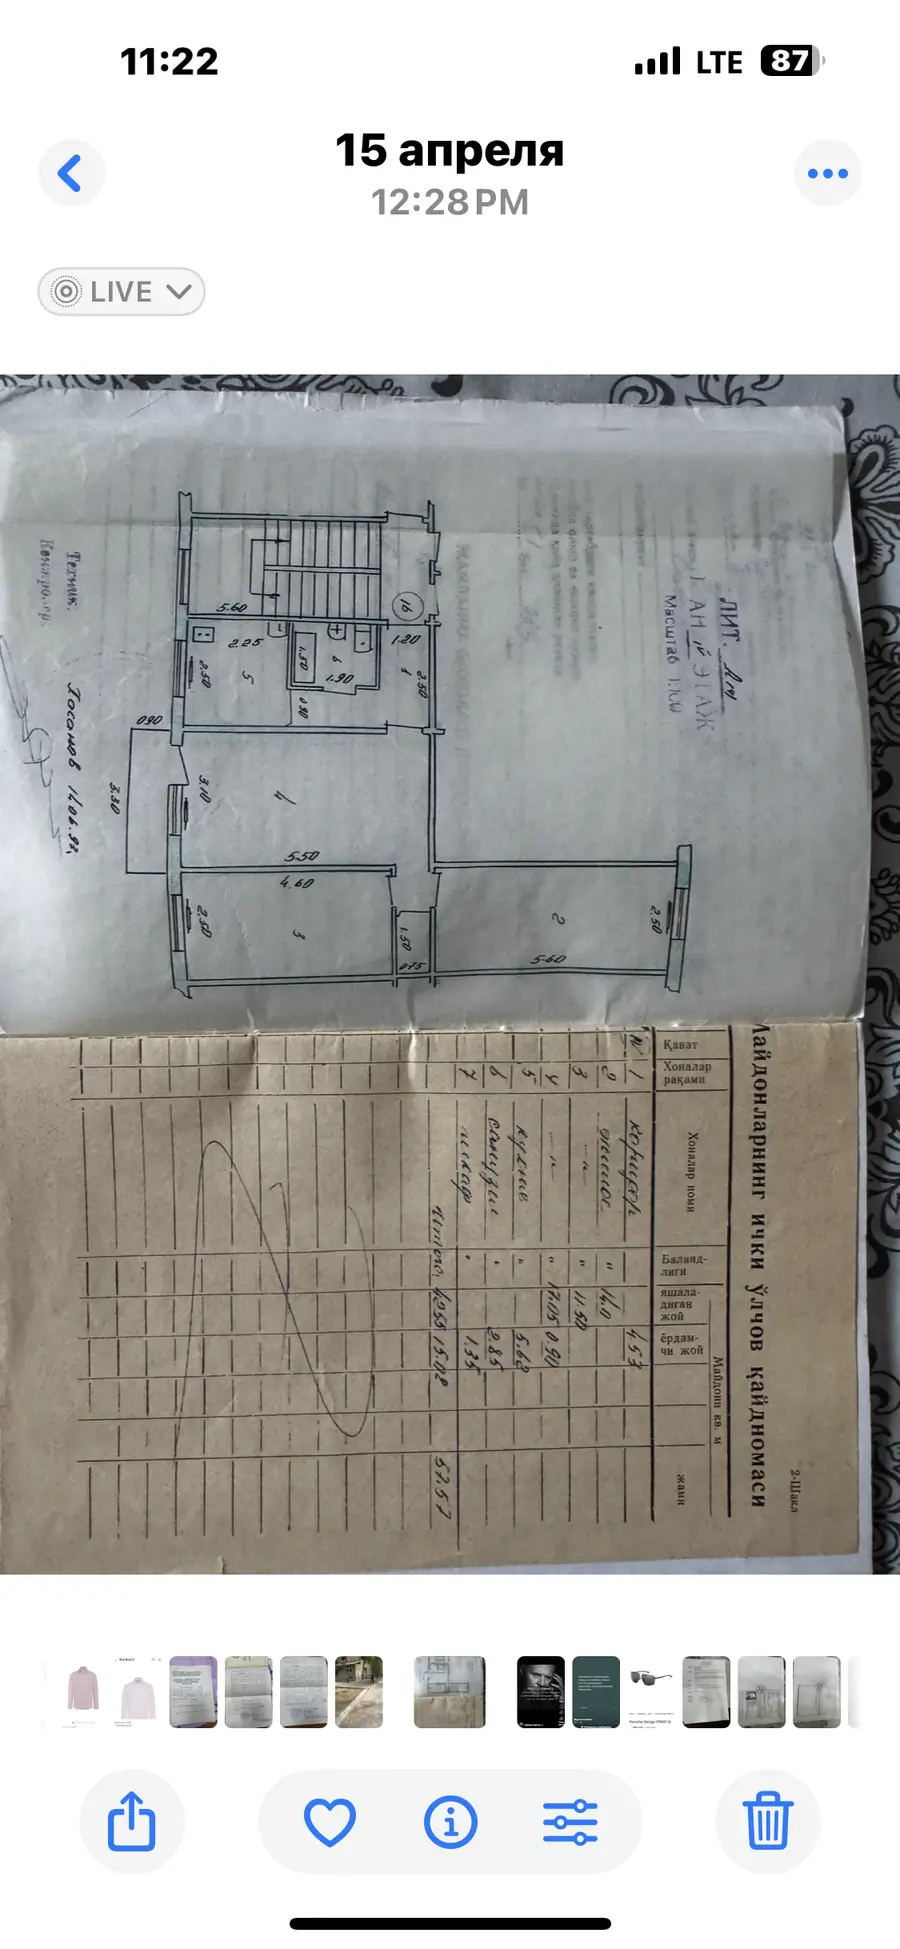 11:22
LTE
87
15 апреля
12:28 PM
LIVE
ЛИТ.
ЭТАЖ
Масштаб 1:100
16
5.60
2.25
2.50
5
1.50
6
1.90
1.20
1
2.50
0.90
0.90
3.30
3.10
4
5.50
4.60
2.50
3
1.50
0.75
2
5.60
2.50
Техник:
Хасанов 14.06.93.
2-Шакл
Майдонларнинг ички ўлчов қайдномаси
Қават
Хоналар рақами
Хоналар номи
Баланд-лиги
Майдони кв. м
яшала-диган жой
ёрдам-чи жой
жами
IV 1 коридор 4.53
2 жилое " 14.0
3 —"— " 11.50
4 —"— " 17.05 0.90
5 кухня " 5.62
6 санузел " 2.85
7 шкаф " 1.35
Итого: 42.55 15.02 57.57